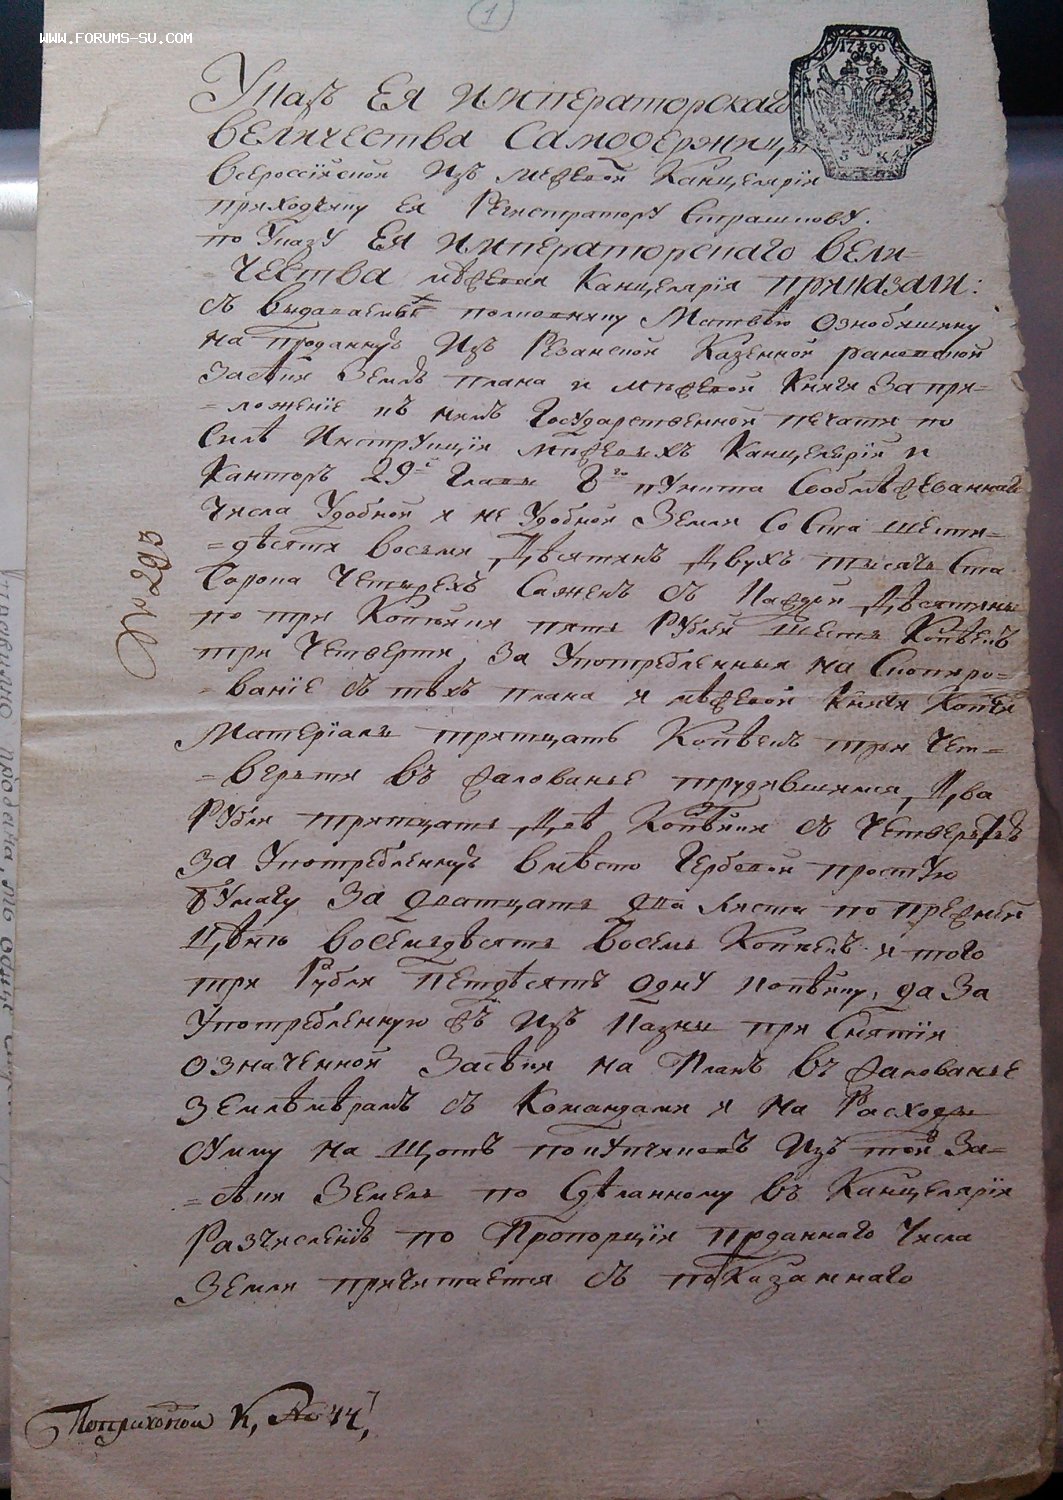 1
WWW.FORUMS-SU.COM
1790
Указъ Ея Императорскаго
величества Самодержицы
всероссiйской Изъ межевой Канцелярiи
приходчику ея Регистратору Страшнову.
по Указу Ея Императорскаго вели-
чества межевая Канцелярiя приказали:
съ выдаваемыхъ полковнику Матвѣю Ознобишину
на проданную Изъ Резанской Казенной рановской
Засѣки Землю плана и межевой Книги За при-
=ложенiе къ нимъ Государственной печати по
Силѣ Инструкцiи межевыхъ Канцелярiи и
Канторъ 29й Главы 8го пункта Сообмѣжеваннаго
Числа Удобной и не Удобной Земли Со Ста шести-
=десяти восьми Десятинъ Двухъ тысячь Ста
Сорока Четырехъ Саженъ съ Каждой Десятины
по три Копѣйки пять Рублей шесть Копѣекъ
три Четверти, За Употребленныя на Скопиро-
=ванiе съ тѣхъ плана и межевой Книги Копiи
Матерiалы тритцать Копѣекъ три Чет-
=верьти въ жалованье трудившимся Два
Рубли тритцать Двѣ Копѣйки съ Четвертью
За Употребленную вмѣсто Гербовой простую
бумагу За дватцать два листа по прежней
Цѣнѣ восемьдѣсятъ восемь Копѣекъ и того
три Рубли петдѣсятъ одну копѣйку, да За
Употребленную жъ Изъ Казны при Снятiи
означенной Засѣки на Планъ въ жалованье
Землѣмѣрамъ съ Командами и на Расходы
сумму на щотъ покупчиковъ Изъ той За-
=сѣки Земель по Сдѣланному въ Канцелярiи
Разчисленiю по Пропорцiи проданнаго Числа
Земли причитается съ показаннаго
№ 295